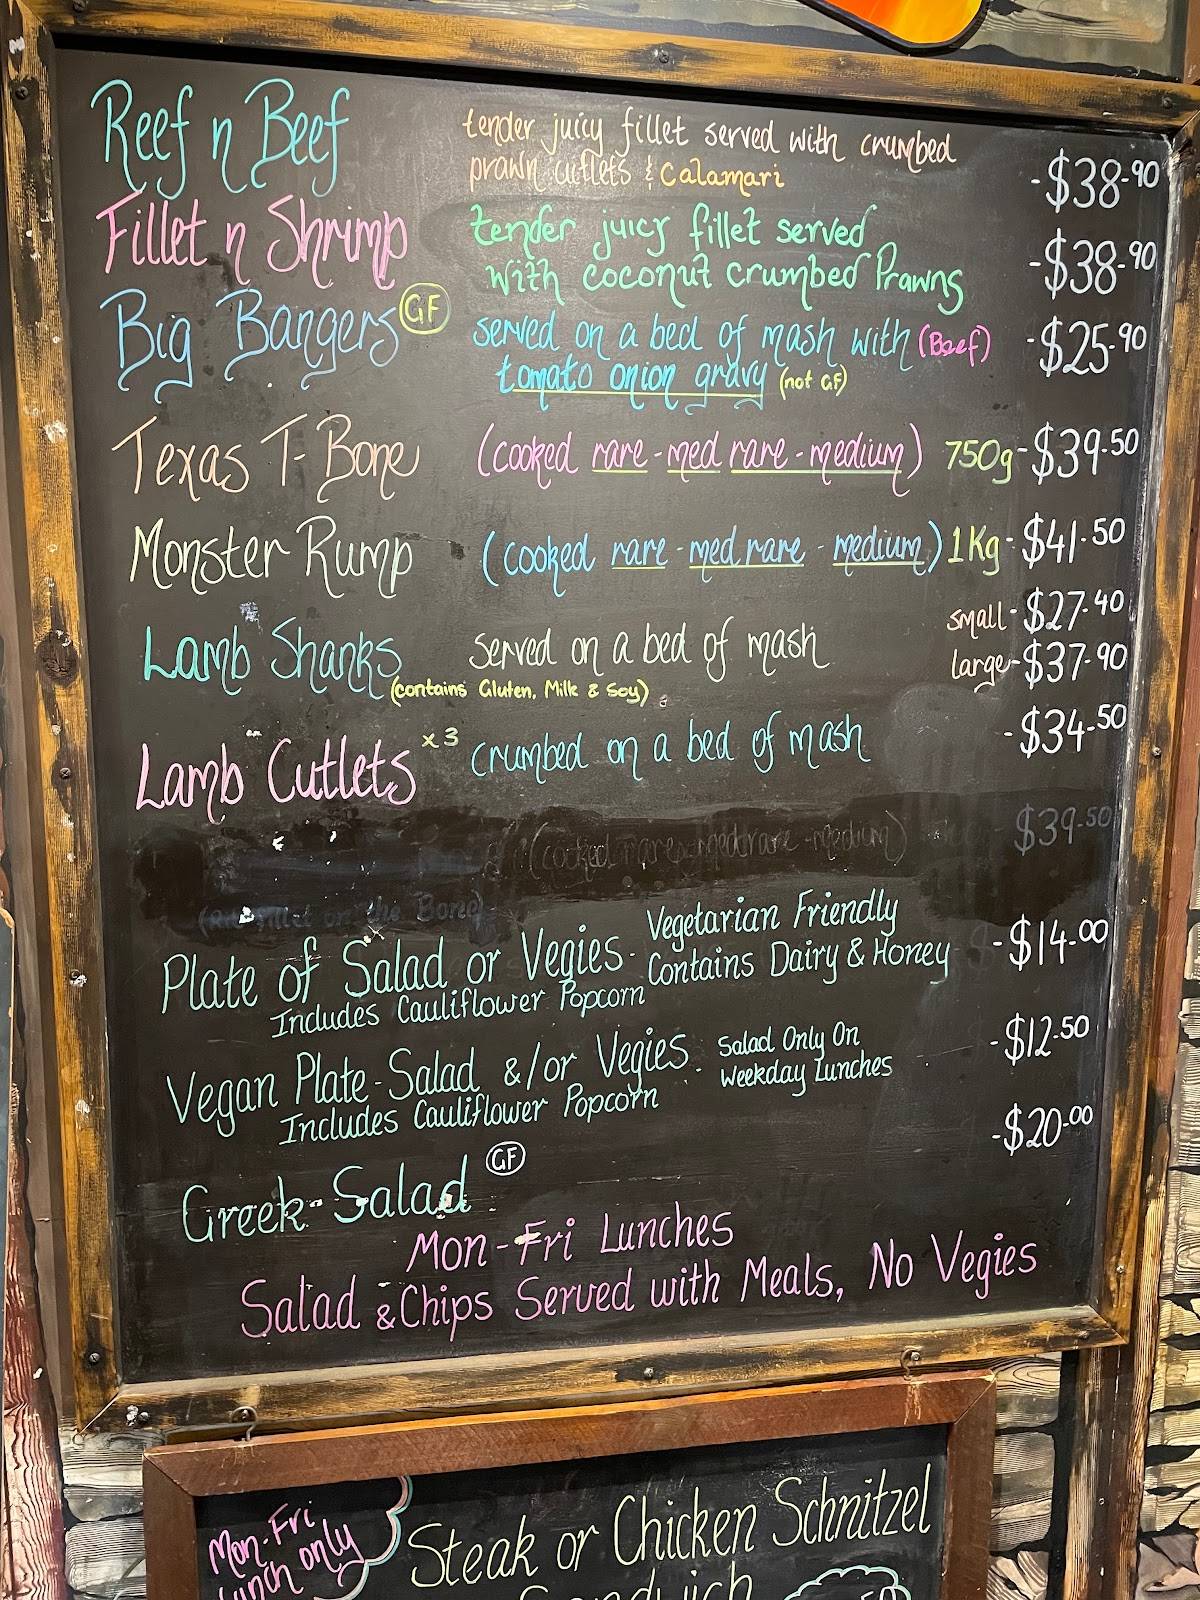 Reef n Beef tender juicy fillet served with crumbed
prawn cutlets & calamari -$38-90
Fillet n Shrimp tender juicy fillet served
with coconut crumbed Prawns -$38-90
Big Bangers GF served on a bed of mash with (Beef) -$25-90
tomato onion gravy (not GF)
Texas T-Bone (cooked rare - med rare - medium) 750g -$39.50
Monster Rump (cooked rare - med rare - medium) 1Kg -$41.50
small -$27.40
Lamb Shanks served on a bed of mash
large -$37.90
(contains Gluten, Milk & Soy)
Lamb Cutlets x3 crumbed on a bed of mash -$34.50
(cooked rare - med rare - medium) $39.50
on the Bone)
Plate of Salad or Vegies - Vegetarian Friendly -$14.00
Includes Cauliflower Popcorn Contains Dairy & Honey
Vegan Plate - Salad &/or Vegies - Salad Only On -$12.50
Includes Cauliflower Popcorn Weekday Lunches
Greek Salad GF -$20.00
Mon-Fri Lunches
Salad & Chips Served with Meals, No Vegies
Mon-Fri
lunch only
Steak or Chicken Schnitzel